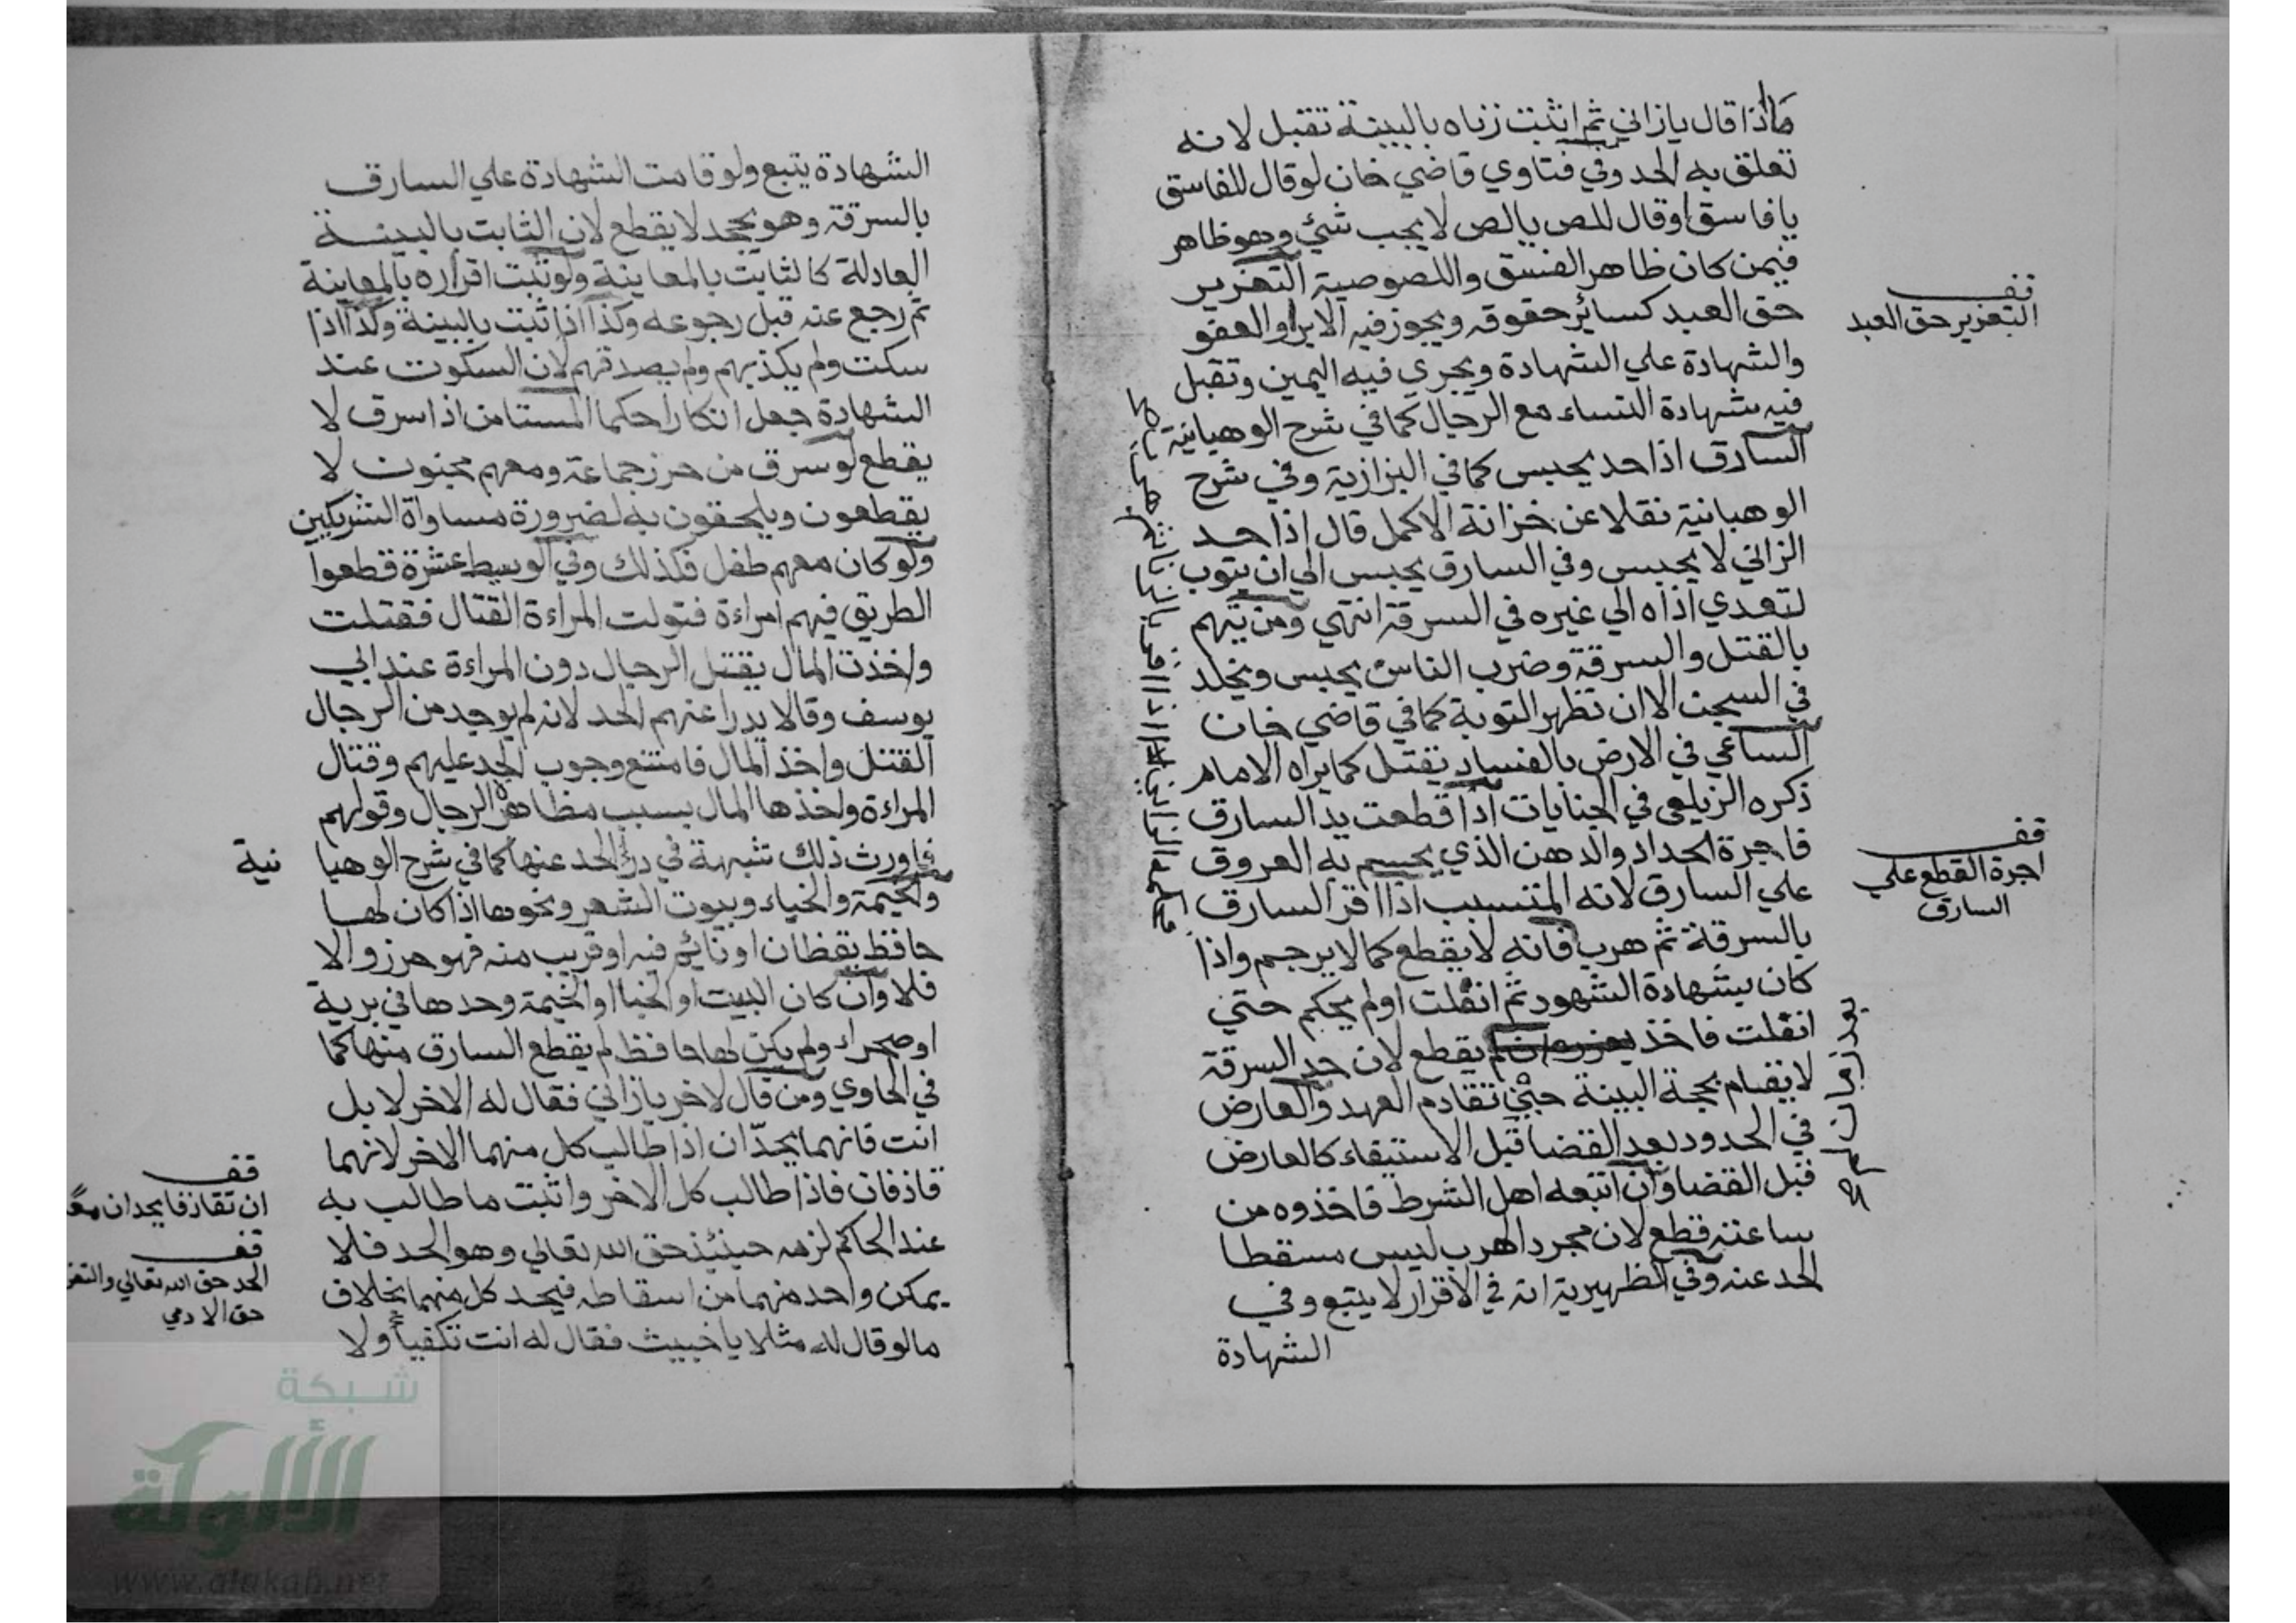 كما اذا قال يازاني ثم اثبت زناه بالبينة تقبل لانه
تعلق به الحد وفي فتاوي قاضي خان لو قال للفاسق
يا فاسق او قال للص يا لص لا يجب شئ وهو ظاهر
فيمن كان ظاهر الفسق واللصوصية التعزير
حق العبد كسائر حقوقه ويجوز فيه الابرا والعفو
والشهادة علي الشهادة ويجري فيه اليمين وتقبل
فيه شهادة النساء مع الرجال كما في شرح الوهبانية
السارق اذا حد يحبس كما في البزازية وفي شرح
الوهبانية نقلا عن خزانة الاكمل قال اذا حد
الزاني لا يحبس وفي السارق يحبس الي ان يتوب
لتعدي اذاه الي غيره في السرقة انتهي ومن يتهم
بالقتل والسرقة وضرب الناس يحبس ويخلد
في السجن الا ان تظهر التوبة كما في قاضي خان
الساعي في الارض بالفساد يقتل كما يراه الامام
ذكره الزيلعي في الجنايات اذا قطعت يد السارق
فاجرة الحداد والدهن الذي يحسم به العروق
علي السارق لانه المتسبب اذا اقر السارق
بالسرقة ثم هرب فانه لا يقطع كما لا يرجم واذا
كان بشهادة الشهود ثم انفلت اولم يحكم حتي
انفلت فاخذ لم يقطع لان حد السرقة
لا يقام بحجة البينة حتي تقادم العهد والعارض
في الحدود بعد القضا قبل الاستيفاء كالعارض
قبل القضا وان اتبعه اهل الشرط فاخذوه من
ساعته قطع لان مجرد الهرب ليس مسقطا
الحد عنه وفي الظهيرية انه في الاقرار لا يتبع وفي
الشهادة
قف
التعزير حق العبد
قف
اجرة القطع علي
السارق
بعد زمان
الشهادة يتبع ولو قامت الشهادة علي السارق
بالسرقة وهو يجحد لا يقطع لان الثابت بالبينة
العادلة كالثابت بالمعاينة ولو ثبت اقراره بالمعاينة
ثم رجع عنه قبل رجوعه وكذا اذا ثبت بالبينة وكذا اذا
سكت ولم يكذبهم ولم يصدقهم لان السكوت عند
الشهادة جعل انكارا حكما المستامن اذا سرق لا
يقطع لو سرق من حرز جماعة ومعهم مجنون لا
يقطعون ويلحقون به لضرورة مساواة الشريكين
ولو كان معهم طفل فكذلك وفي الوسيط عشرة قطعوا
الطريق فيهم امراءة فتولت المراءة القتال فقتلت
واخذت المال يقتل الرجال دون المراءة عند ابي
يوسف وقالا يدرا عنهم الحد لانه لم يوجد من الرجال
القتل واخذ المال فامتنع وجوب الحد عليهم وقتال
المراءة واخذها المال بسبب مظاهرة الرجال وقولهم
فاورث ذلك شبهة في درء الحد عنها كما في شرح الوهبا نية
والخيمة والخباء وبيوت الشعر ونحوها اذا كان لها
حافظ يقظان او نائم فيه او قريب منه فهو حرز والا
فلا وان كان البيت او الخبا او الخيمة وحدها في برية
او صحراء ولم يكن لها حافظ لم يقطع السارق منها كما
في الحاوي ومن قال لاخر يازاني فقال له الاخر لا بل
انت فانهما يحدّان اذا طالب كل منهما الاخر لانهما
قاذفان فاذا طالب كل الاخر واثبت ما طالب به
عند الحاكم لزمه حينئذ حق الله تعالي وهو الحد فلا
يمكن واحد منهما من اسقاطه فيحد كل منهما بخلاف
مالو قال له مثلا يا خبيث فقال له انت تكفيا ولا
قف
ان تقاذفا يحدان معًا
قف
الحد حق الله تعالي والتعز
حق الادمي
شبكة
الألوكة
www.alukah.net